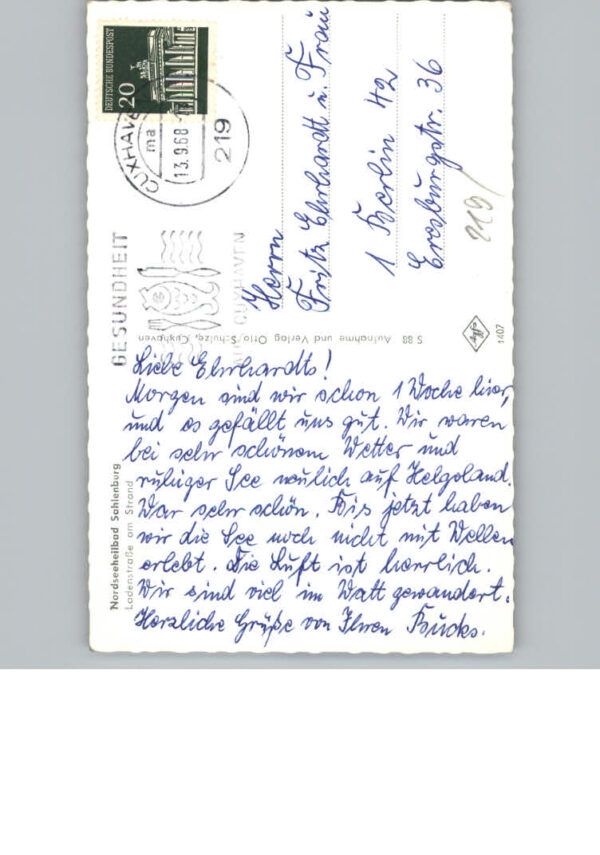 DEUTSCHE BUNDESPOST
20
CUXHAVEN
ma
13.9.68
219
GESUNDHEIT
CUXHAVEN
Herrn
Fritz Ehrhardt u. Frau
1 Berlin 42
Eresburgstr. 36
219/
S 88 Aufnahme und Verlag Otto Schulze, Cuxhaven
Agfa
1407
Liebe Ehrhardts!
Morgen sind wir schon 1 Woche hier,
und es gefällt uns gut. Wir waren
bei sehr schönem Wetter und
ruhiger See neulich auf Helgoland.
War sehr schön. Bis jetzt haben
wir die See noch nicht mit Wellen
erlebt. Die Luft ist herrlich.
Wir sind viel im Watt gewandert.
Herzliche Grüße von Ihren Bucks.
Nordseeheilbad Sahlenburg
Ladenstraße am Strand